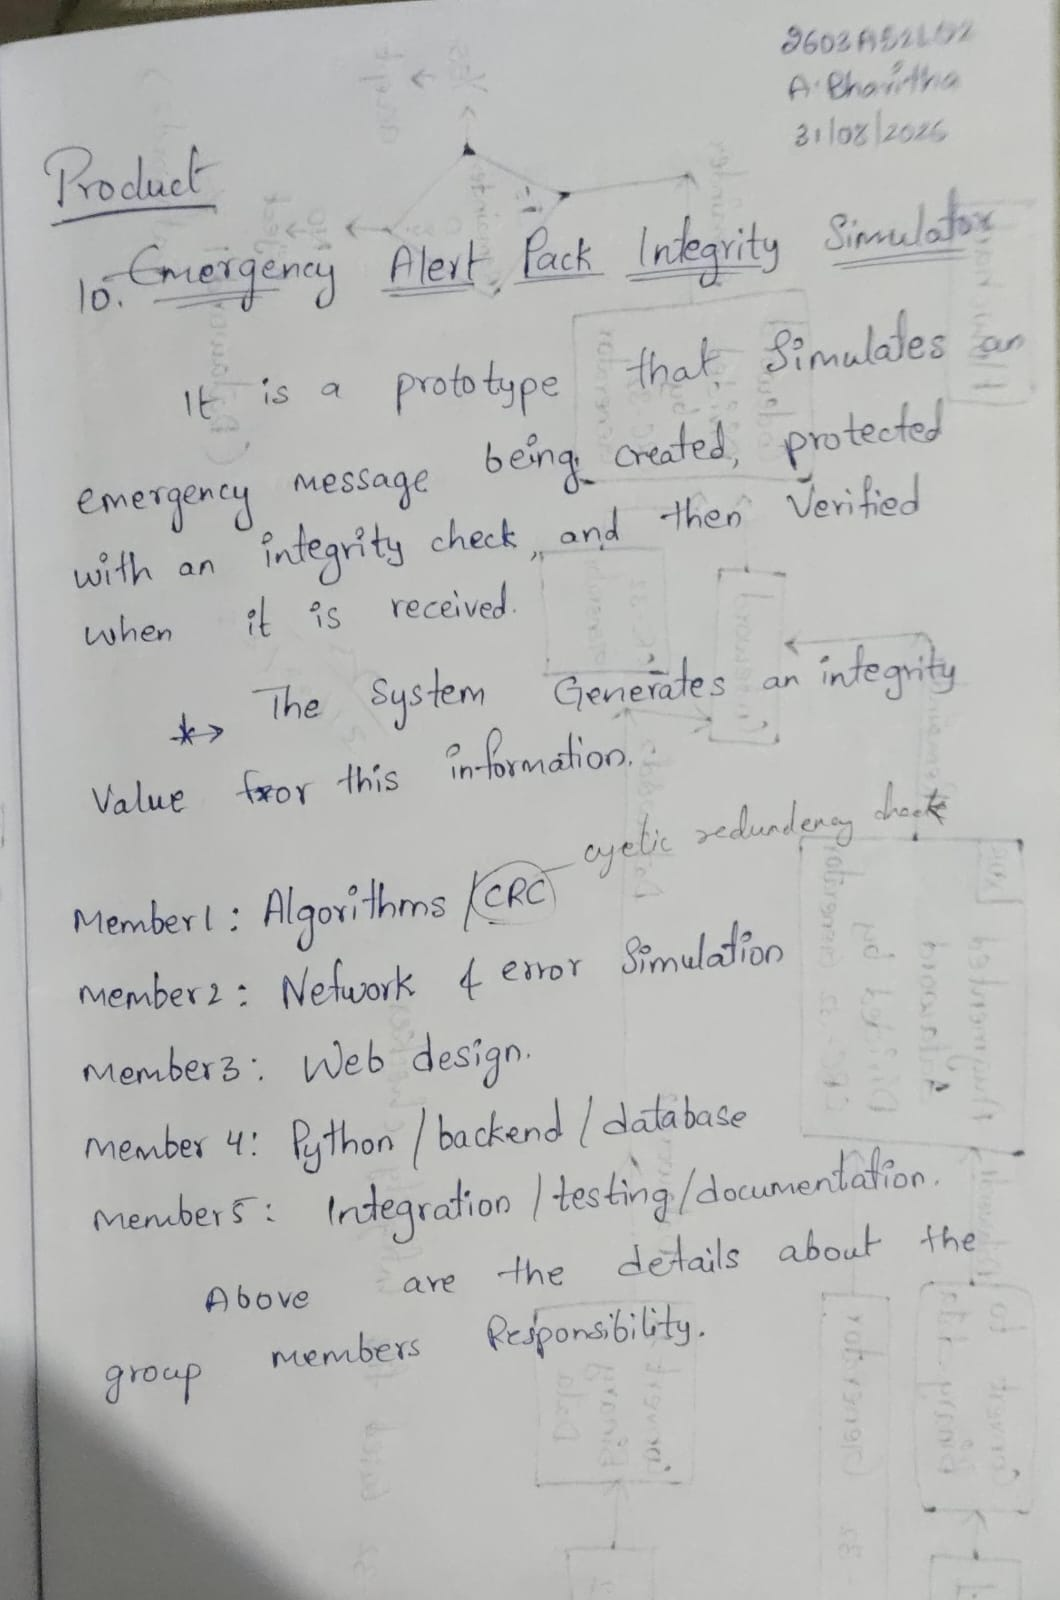 A. Bhavitha
31/08/2026
Product
10. Emergency Alert Pack Integrity Simulator
It is a prototype that Simulates an
emergency message being created, protected
with an integrity check, and then Verified
when it is received.
The System Generates an integrity
Value for this information.
cyclic redundency check
Member1: Algorithms / CRC
Member2: Network & error Simulation
Member3: Web design.
Member 4: Python / backend / database
Member5: Integration / testing / documentation.
Above are the details about the
group members Responsibility.